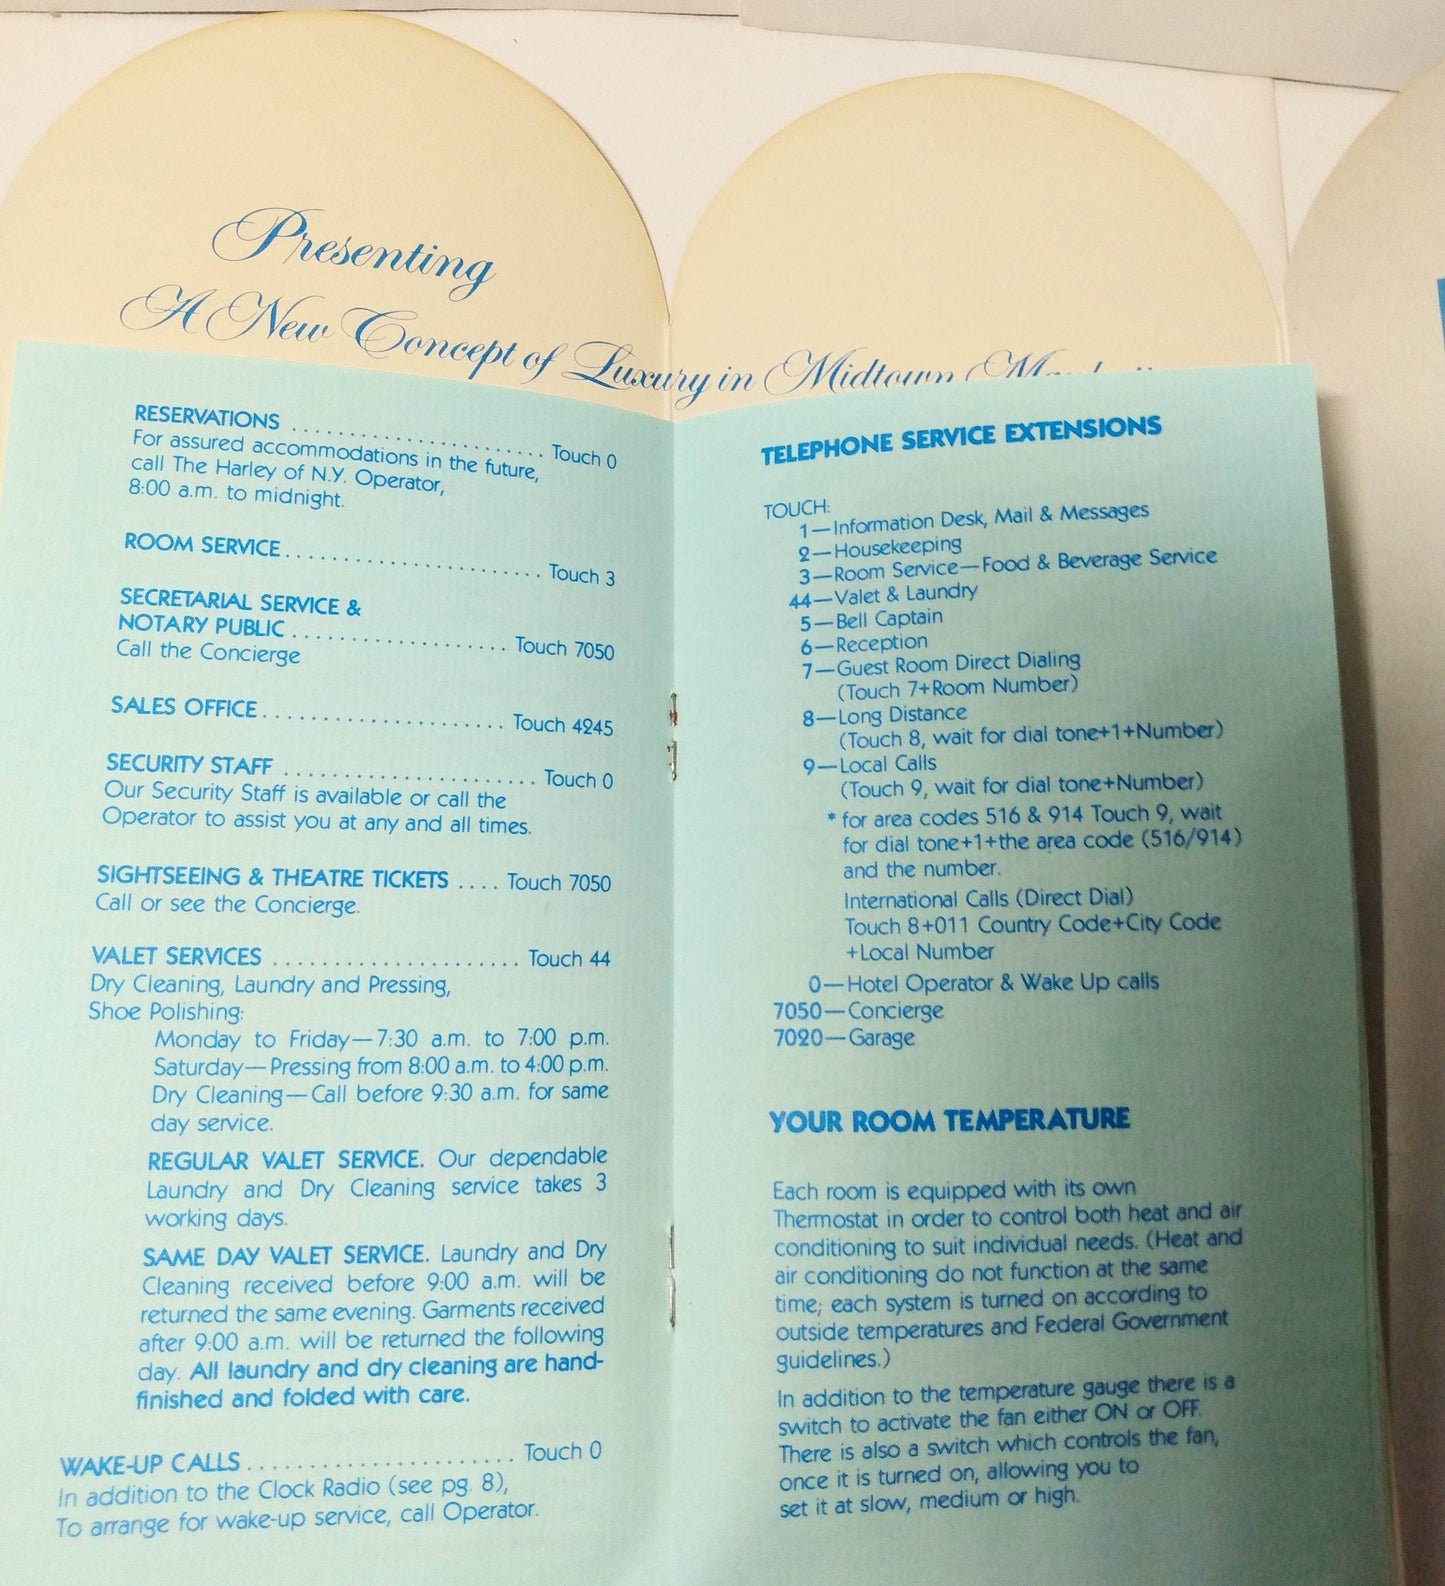 Presenting
A New Concept of Luxury in Midtown
RESERVATIONS ........................ Touch 0
For assured accommodations in the future,
call The Harley of N.Y. Operator,
8:00 a.m. to midnight.
ROOM SERVICE........................ Touch 3
SECRETARIAL SERVICE &
NOTARY PUBLIC.................... Touch 7050
Call the Concierge
SALES OFFICE...................... Touch 4245
SECURITY STAFF ........................ Touch 0
Our Security Staff is available or call the
Operator to assist you at any and all times.
SIGHTSEEING & THEATRE TICKETS .... Touch 7050
Call or see the Concierge.
VALET SERVICES ...................... Touch 44
Dry Cleaning, Laundry and Pressing,
Shoe Polishing:
Monday to Friday—7:30 a.m. to 7:00 p.m.
Saturday—Pressing from 8:00 a.m. to 4:00 p.m.
Dry Cleaning—Call before 9:30 a.m. for same
day service.
REGULAR VALET SERVICE. Our dependable
Laundry and Dry Cleaning service takes 3
working days.
SAME DAY VALET SERVICE. Laundry and Dry
Cleaning received before 9:00 a.m. will be
returned the same evening. Garments received
after 9:00 a.m. will be returned the following
day. All laundry and dry cleaning are hand-
finished and folded with care.
WAKE-UP CALLS........................ Touch 0
In addition to the Clock Radio (see pg. 8),
To arrange for wake-up service, call Operator.
TELEPHONE SERVICE EXTENSIONS
TOUCH:
1—Information Desk, Mail & Messages
2—Housekeeping
3—Room Service—Food & Beverage Service
44—Valet & Laundry
5—Bell Captain
6—Reception
7—Guest Room Direct Dialing
(Touch 7+Room Number)
8—Long Distance
(Touch 8, wait for dial tone+1+Number)
9—Local Calls
(Touch 9, wait for dial tone+Number)
* for area codes 516 & 914 Touch 9, wait
for dial tone+1+the area code (516/914)
and the number.
International Calls (Direct Dial)
Touch 8+011 Country Code+City Code
+Local Number
0—Hotel Operator & Wake Up calls
7050—Concierge
7020—Garage
YOUR ROOM TEMPERATURE
Each room is equipped with its own
Thermostat in order to control both heat and air
conditioning to suit individual needs. (Heat and
air conditioning do not function at the same
time; each system is turned on according to
outside temperatures and Federal Government
guidelines.)
In addition to the temperature gauge there is a
switch to activate the fan either ON or OFF.
There is also a switch which controls the fan,
once it is turned on, allowing you to
set it at slow, medium or high.